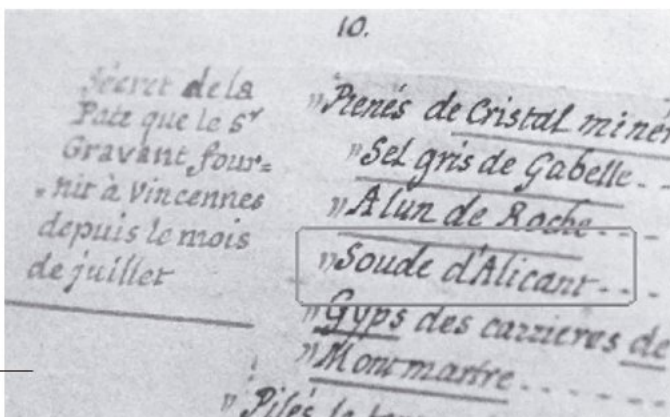 10.
Sécret de la
Pate que le Sr
Gravant four=
nir à Vincennes
depuis le mois
de juillet
"Prenés de Cristal minér
"Sel gris de Gabelle - -
"Alun de Roche - - -
"Soude d'Alicant - - - -
"Gyps des carrieres de
"Montmartre - - - - -
"Pilés le tout